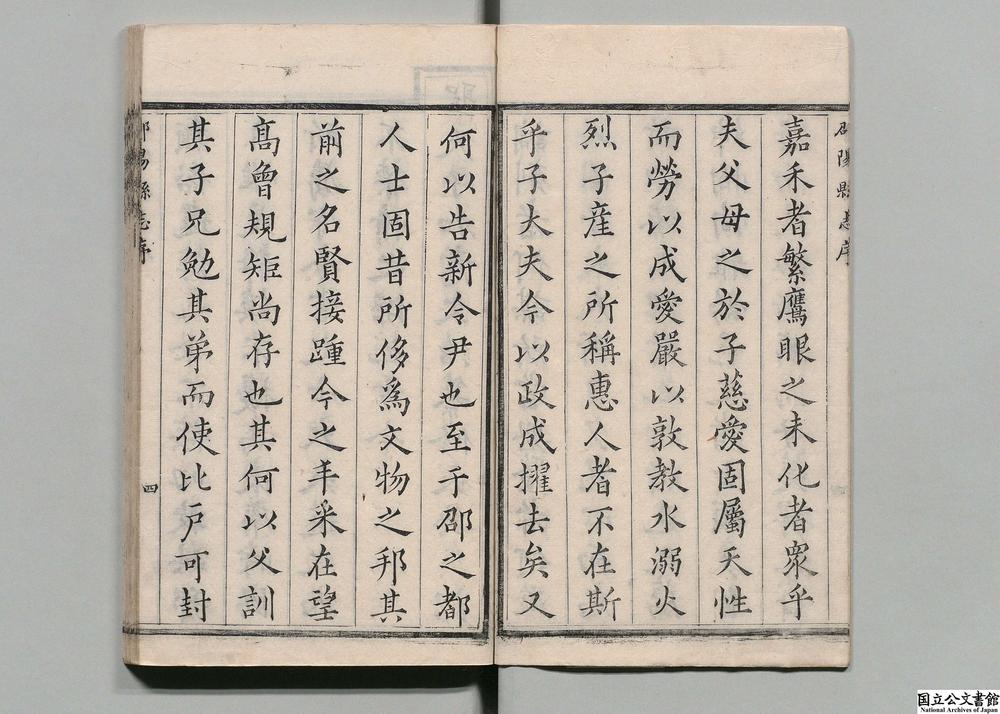 邵陽縣志序
嘉禾者繁鷹眼之未化者衆乎
夫父母之於子慈愛固屬天性
而勞以成愛嚴以敦教水溺火
烈子産之所稱惠人者不在斯
乎子大夫今以政成擢去矣又
何以告新令尹也至于邵之都
人士固昔所侈為文物之邦其
前之名賢接踵今之丰采在望
高曾規矩尚存也其何以父訓
其子兄勉其弟而使比户可封
邵陽縣志序
四
国立公文書館
National Archives of Japan